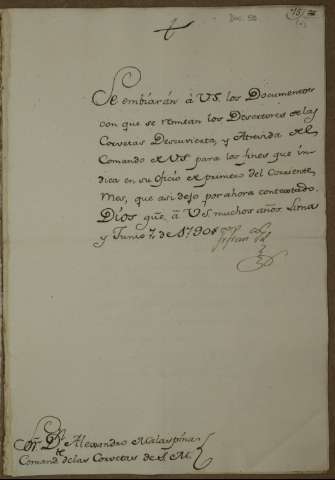 Doc. 58
Se embiarán à V.S. los Documentos
con que se remitan los Desertores de las
Corvetas Descuvierta, y Atrevida del
Comando de VS para los fines que in-
dica en su oficio de primero del Corriente
Mes, que asi dejo por ahora contextado.
Dios gūe. à V.S. muchos años Lima
y Junio 7, de 1790
Sōr. Dn. Alexandro Malaspina
Comandte. de las Corvetas de S. M.